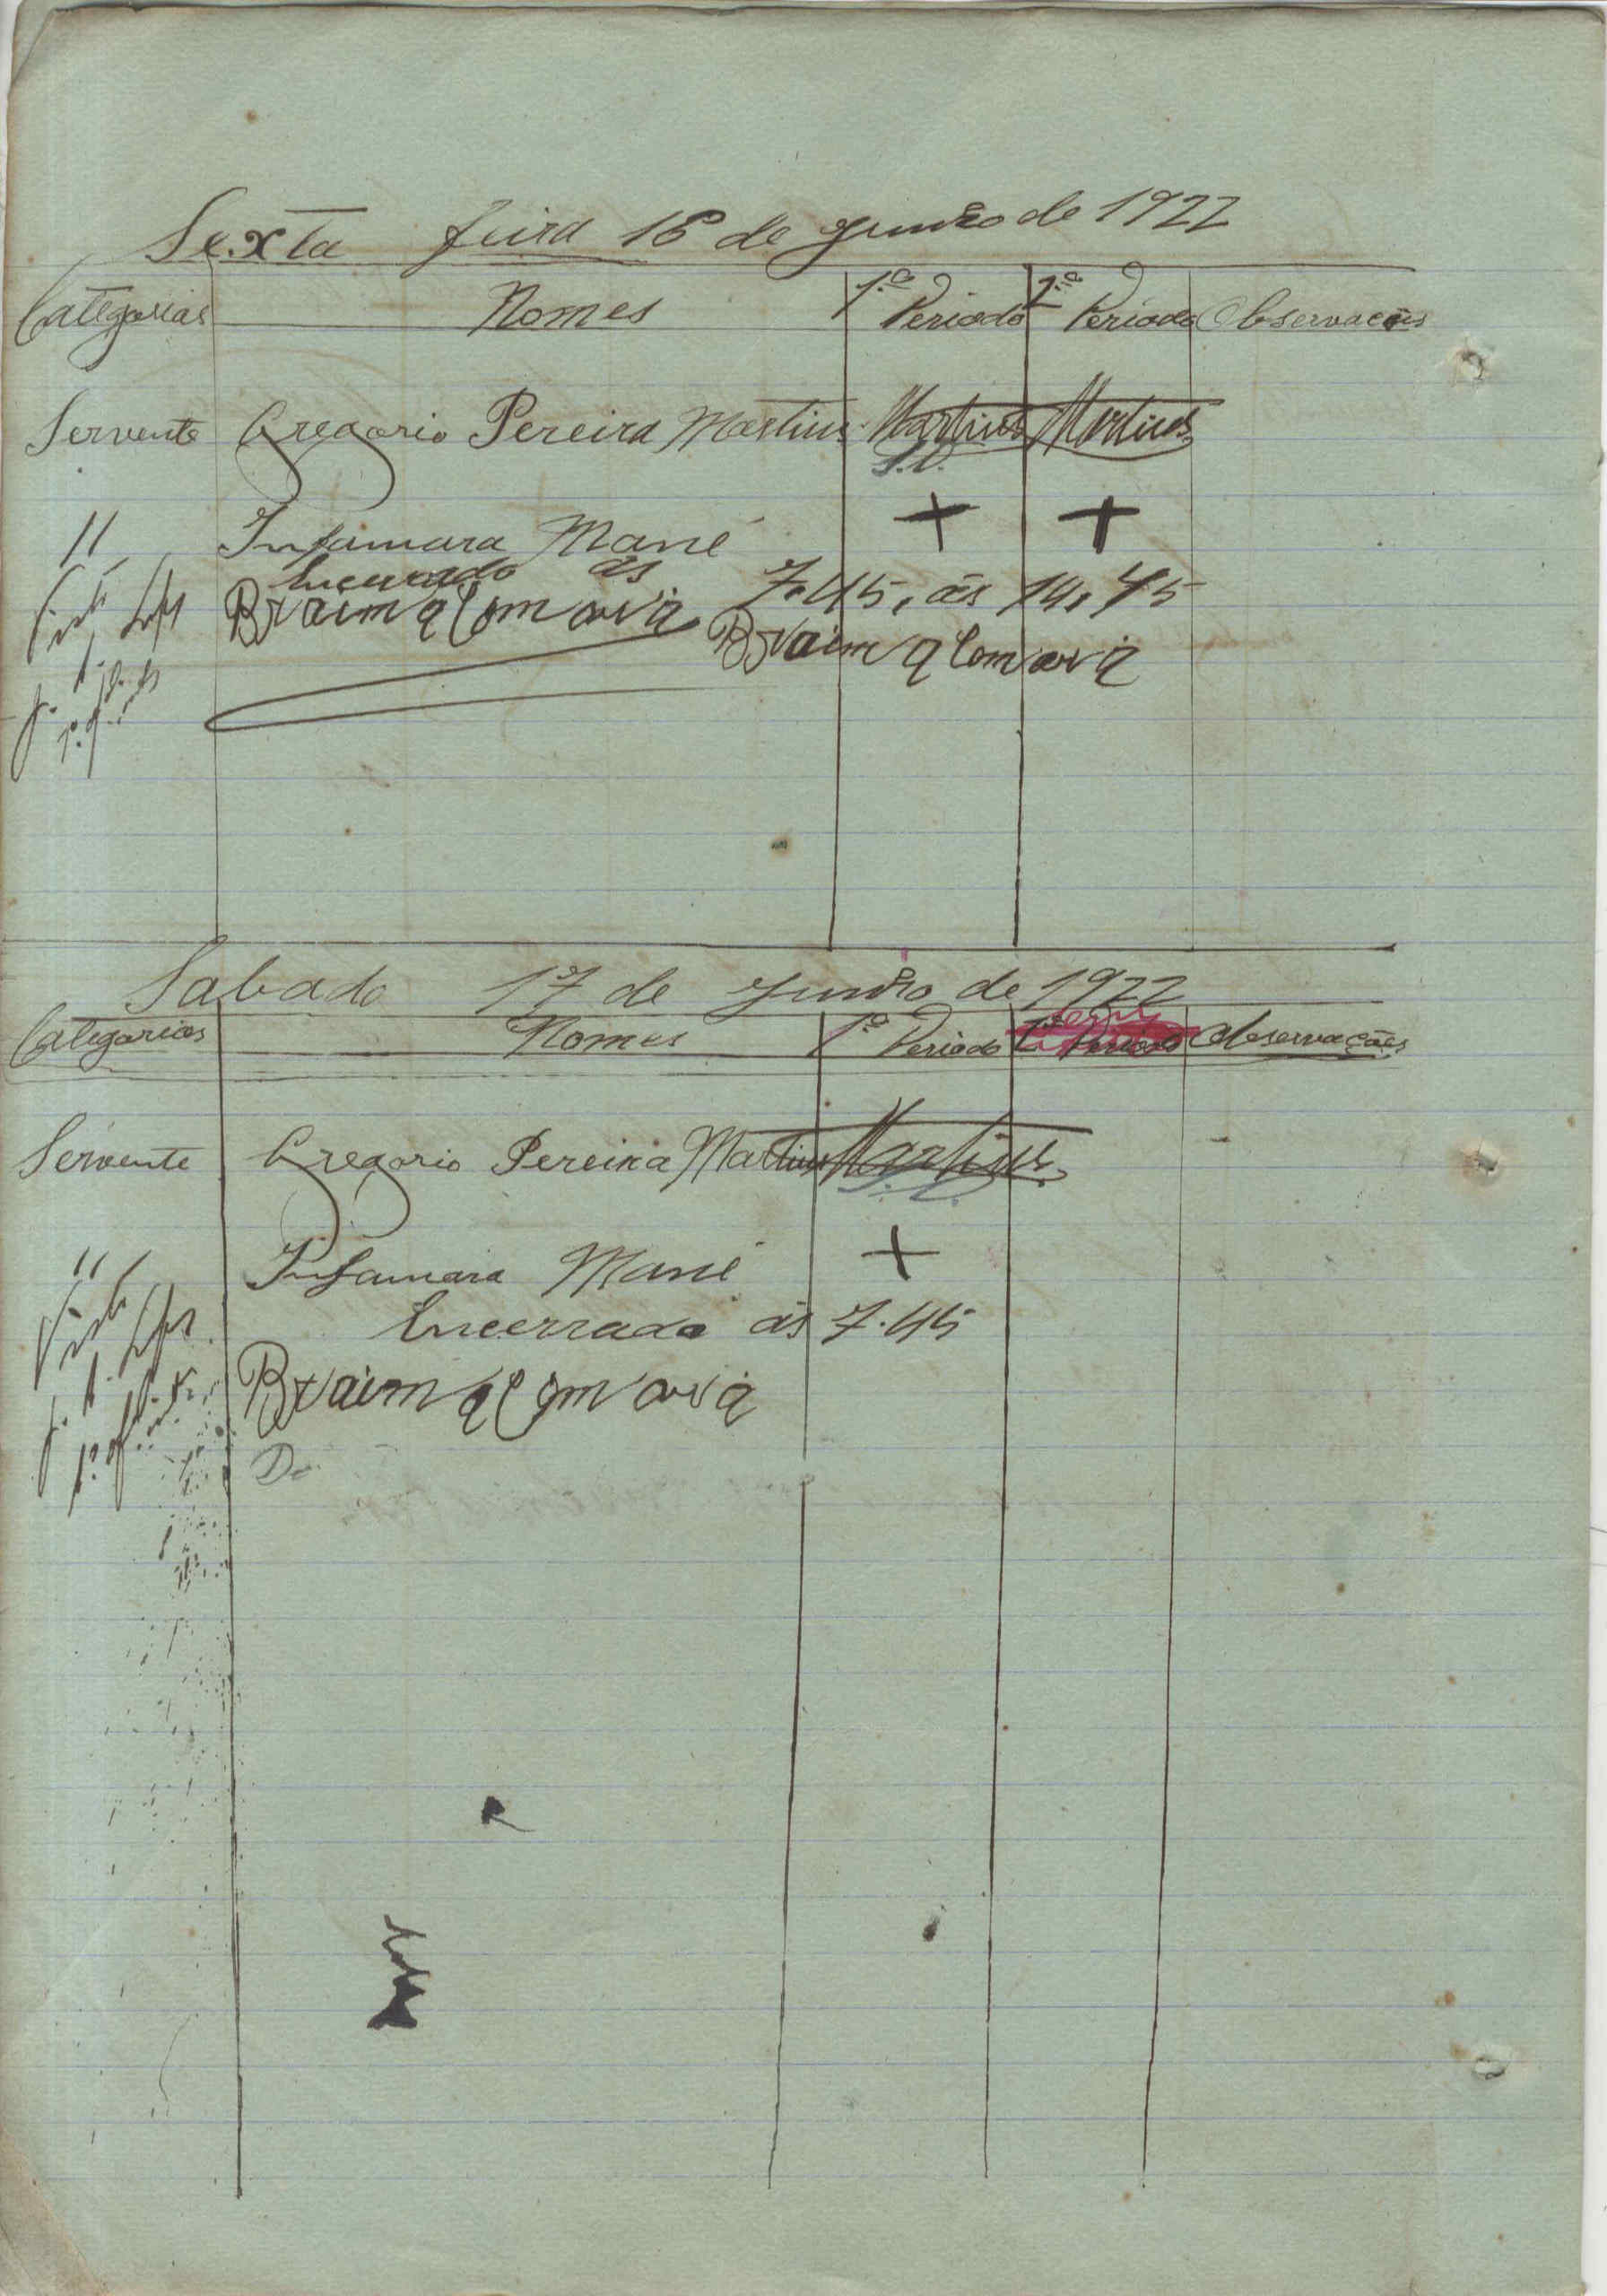 Sexta feira 16 de Junho de 1922
Categorias Nomes 1.º Periodo 2.º Periodo Observações
Servente Gregorio Pereira Martins Martins Martins
" Infamara Mané + +
Encerrado ás 7.45, ás 14,45
Braima Comará
Braima Comará
Sabado 17 de Junho de 1922
Categorias Nomes 1.º Periodo Periodo Observações
Servente Gregorio Pereira Martins Martins
" Infamara Mané +
Encerrado ás 7.45
Braima Comará
De